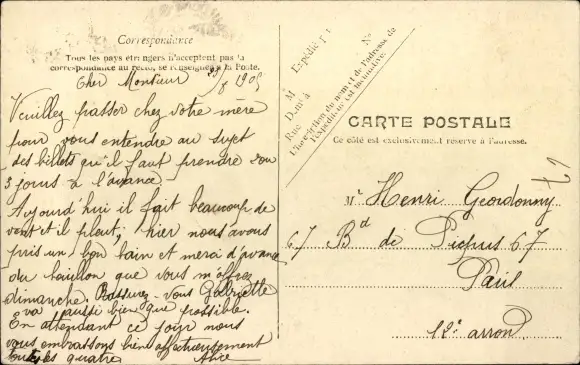 Correspondance
Tous les pays étrangers n'acceptent pas la
correspondance au recto, se renseigner à la Poste.
Cher Monsieur 8 1905
Veuillez passer chez votre mère
pour vous entendre au sujet
des billets qu'il faut prendre 2 ou
3 jours à l'avance
Aujourd'hui il fait beaucoup de
vent et il pleut; hier nous avons
pris un bon bain et merci d'avance
du que vous m'offrez
dimanche. Rassurez-vous Gabrielle
va aussi bien que possible.
En attendant ce jour nous
vous embrassons bien affectueusement
toutes les quatre Alice
Expédié
N°
M
Demt à
Rue
L'inscription du nom et de l'adresse de
l'Expéditeur est facultative.
CARTE POSTALE
Ce côté est exclusivement réservé à l'adresse.
M Henri Geordonny
67 Bd de Picpus 67
Paris
12e arrond.